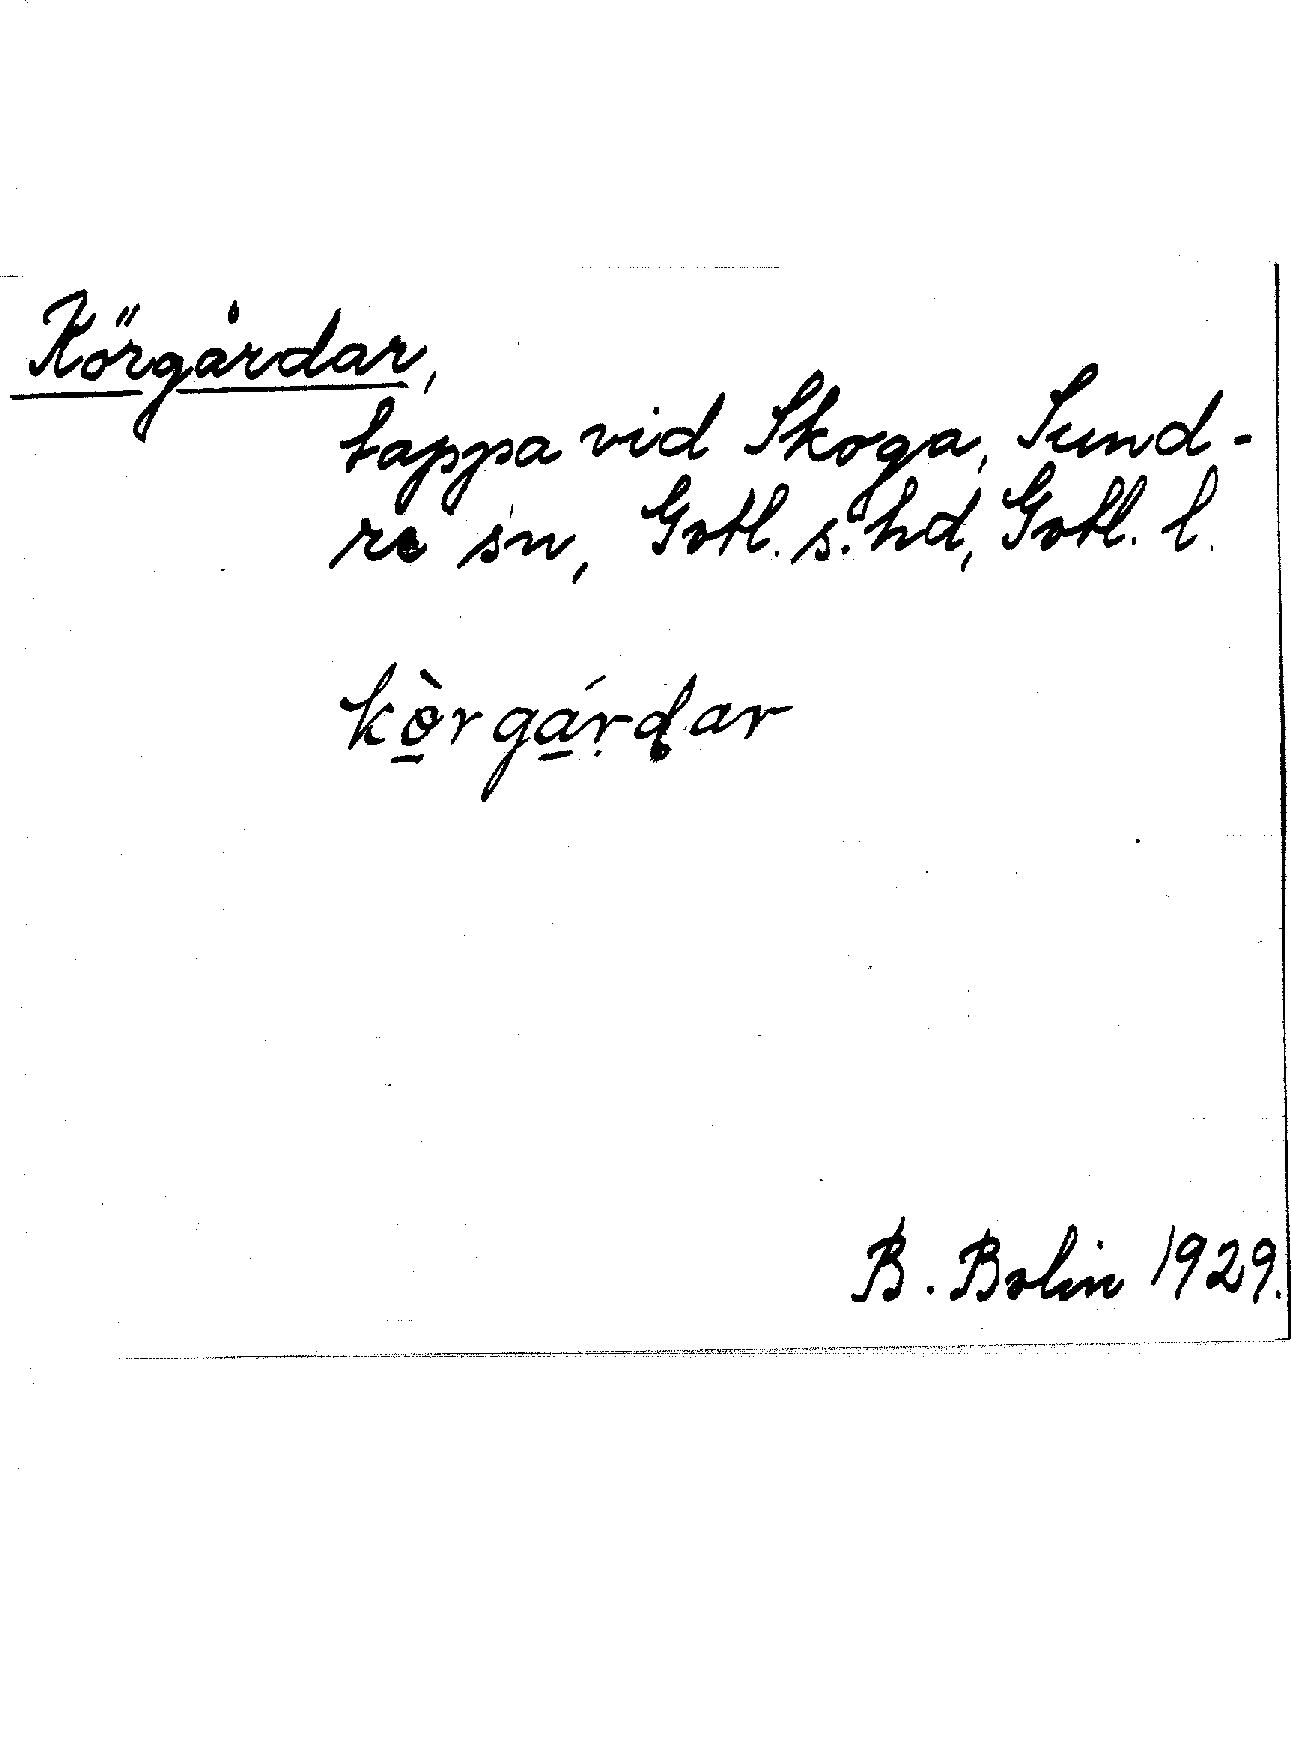 Körgårdar,
tappa vid Skoga, Sund-
re sn, Gotl. s. hd, Gotl. l.
kö̀rgárdar
B. Bolin 1929.